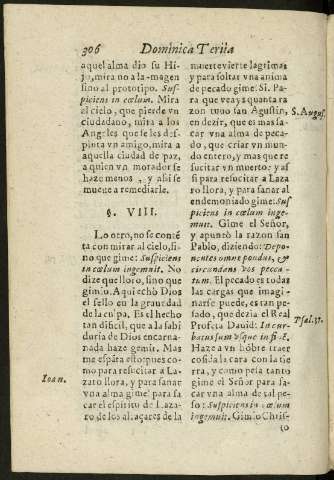 306 Dominica Tertia
aquel alma dio su Hi-
jo, mira no a la imagen
sino al prototipo. Sus-
piciens in cœlum. Mira
el cielo, que pierde vn
ciudadano, mira a los
Angeles que se les des-
pinta vn amigo, mira a
aquella ciudad de paz,
a quien vn morador se
haze menos, y assi se
mueue a remediarle.
§. VIII.
Lo otro, no se conté
ta con mirar al cielo, si-
no que gime: Suspiciens
in cœlum ingemuit. No
dize que lloro, sino que
gimio. Aqui echò Dios
el sello en la grauedad
de la culpa. Es el hecho
tan dificil, que a la sabi
duria de Dios encarna-
nada haze gemir. Mas
me espãta esto: pues co-
mo para resucitar a La-
zaro llora, y para sanar
vna alma gime? para sa
car el espiritu de Laza-
ro de los alcaçares de la
Ioan.
muerte vierte lagrimas
y para soltar vna anima
de pecado gime: Si. Pa-
ra que veays quanta ra
zon tuuo san Agustin,
en dezir, que es mas sa-
car vna alma de peca-
do, que criar vn mun-
do entero, y mas que re
sucitar vn muerto: y as
si para resucitar a Laza
ro llora, y para sanar al
endemoniado gime: Sus
piciens in cœlum inge-
muit. Gime el Señor,
y apuntò la razon san
Pablo, diziendo: Depo-
nentes omne pondus, &
circundans vos pecca-
tum. El pecado es todas
las cargas que imagi-
narse puede, es tan pe-
sado, que dezia el Real
Profeta Dauid: Incur-
batus sum vsque in finẽ.
Haze a vn hõbre traer
cosida la cara con la tie
rra, y como pesa tanto
gime el Señor para sa-
car vna alma de tal pe-
so: Suspiciens in cœlum
ingemuit. Gimio Chris-
to
S. Augus.
Psal. 37.